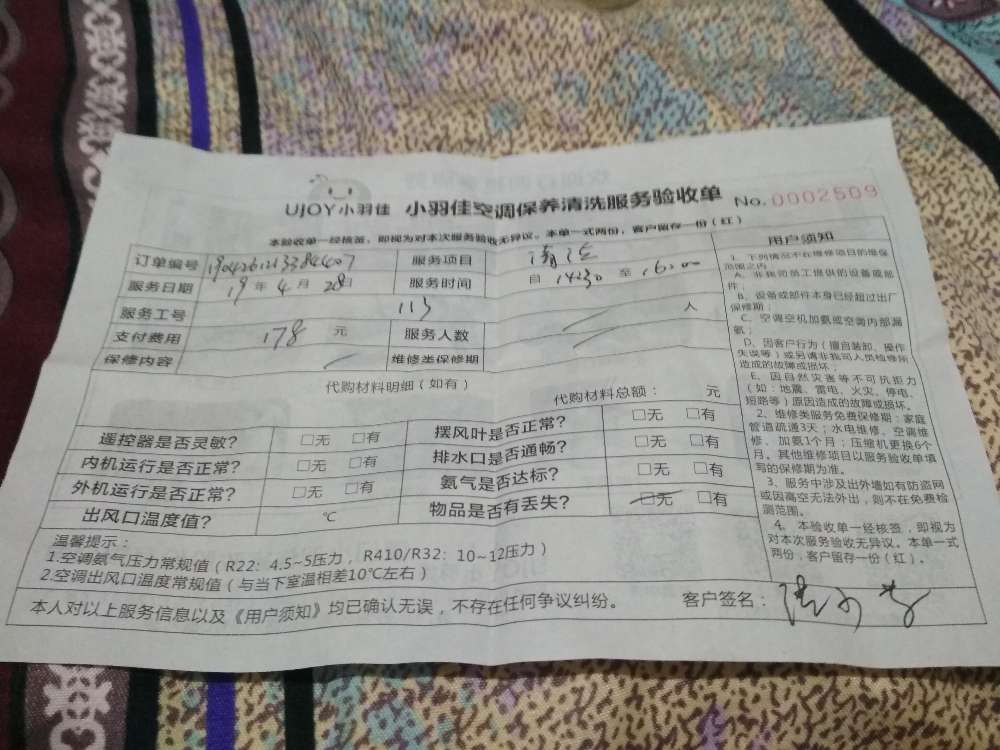 UJOY小羽佳 小羽佳空调保养清洗服务验收单 No. 0002509
本验收单一经核签，即视为对本次服务验收无异议。本单一式两份，客户留存一份（红）
订单编号 服务项目 清洗
服务日期 19年4月28日 服务时间 自 14:30 至 16:00
服务工号 113
支付费用 178 元 服务人数 人
保修内容 维修类保修期
代购材料明细（如有） 代购材料总额： 元
遥控器是否灵敏？ □无 □有 摆风叶是否正常？ □无 □有
内机运行是否正常？ □无 □有 排水口是否通畅？ □无 □有
外机运行是否正常？ □无 □有 氨气是否达标？ □无 □有
出风口温度值？ ℃ 物品是否有丢失？ □无 □有
温馨提示：
1.空调氨气压力常规值（R22：4.5~5压力，R410/R32：10~12压力）
2.空调出风口温度常规值（与当下室温相差10℃左右）
本人对以上服务信息以及《用户须知》均已确认无误，不存在任何争议纠纷。 客户签名：
用户须知
1、下列情况不在维修项目的维保
范围之内
A、非我司员工提供的设备或部
件；
B、设备或部件本身已经超过出厂
保修期；
C、空调空机加氨或空调内部漏
氨；
D、因客户行为（擅自装卸、操作
失误等）或另请非我司人员检修所
造成的故障或损坏；
E、因自然灾害等不可抗拒力
（如：地震、雷电、火灾、停电、
短路等）原因造成的故障或损坏。
2、维修类服务免费保修期：家庭
管道疏通3天；水电维修、空调维
修、加氨1个月；压缩机更换6个
月。其他维修项目以服务验收单填
写的保修期为准。
3、服务中涉及出外墙如有防盗网
或因高空无法外出，则不在免费检
测范围。
4、本验收单一经核签，即视为
对本次服务验收无异议。本单一式
两份，客户留存一份（红）。